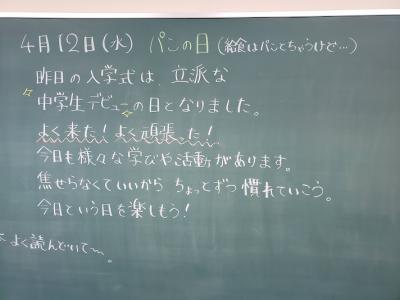 4月12日(水) パンの日(給食はパンとちゃうけど…)
昨日の入学式は、立派な
中学生デビューの日となりました。
よく来た！よく頑張った！
今日も様々な学びや活動があります。
焦せらなくていいから ちょっとずつ 慣れていこう。
今日という日を楽しもう！
よく読んどいて〜。